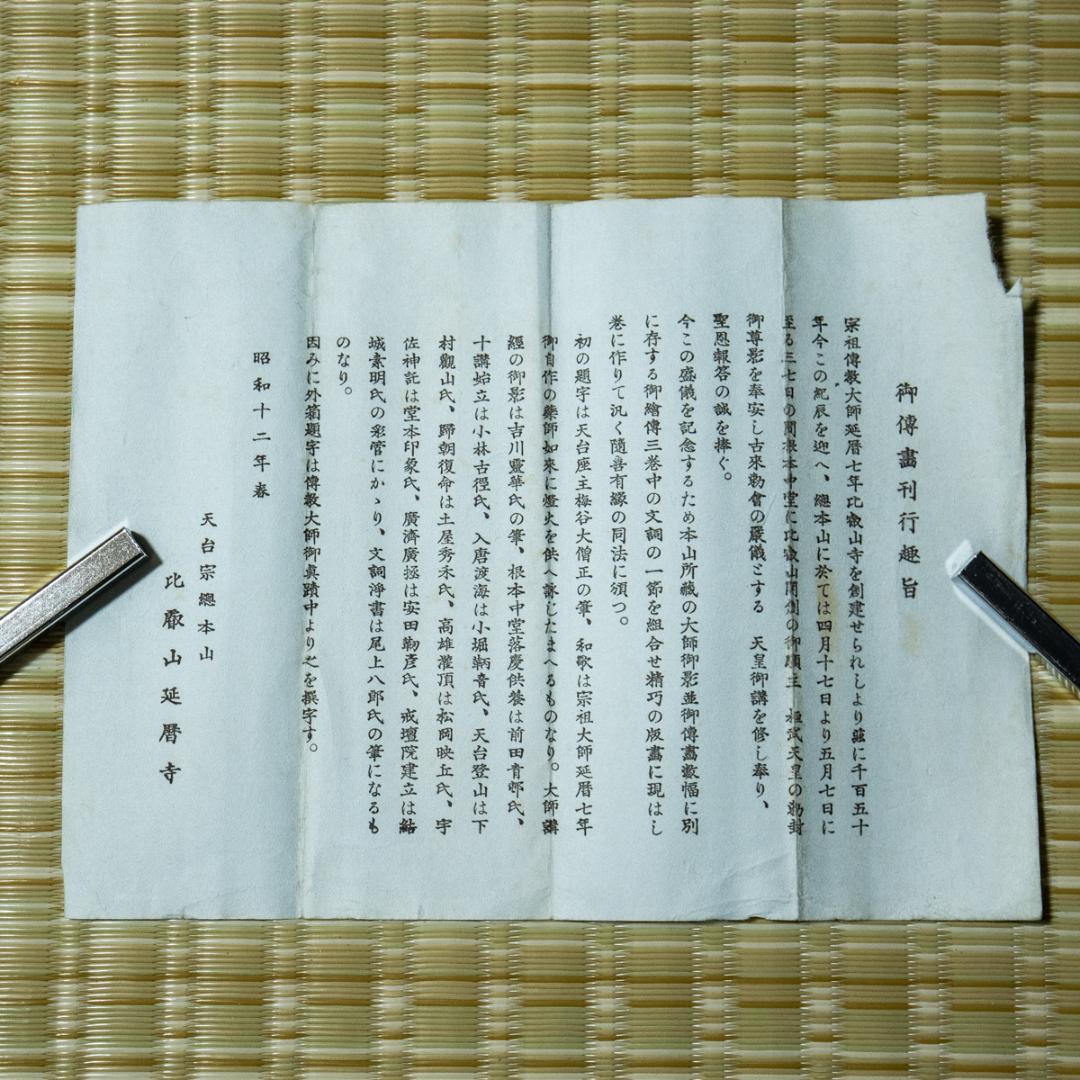 御傳畵刊行趣旨
宗祖傳敎大師延曆七年比叡山寺を創建せられしより茲に千百五十
年今この紀辰を迎へ、總本山に於ては四月十七日より五月七日に
至る三七日の間根本中堂に比叡山開創の御願主　桓武天皇の勅封
御尊影を奉安し古來勅會の嚴儀とする　天皇御講を修し奉り、
聖恩報答の誠を捧ぐ。
今この盛儀を記念するため本山所藏の大師御影並御傳畵數幅に別
に存する御繪傳三卷中の文詞の一節を組合せ精巧の版畵に現はし
卷に作りて汎く隨喜有緣の同法に頒つ。
初の題字は天台座主梅谷大僧正の筆、和歌は宗祖大師延曆七年
御自作の藥師如來に燈火を供へ詠じたまへるものなり。大師講
經の御影は吉川靈華氏の筆、根本中堂落慶供養は前田靑邨氏、
十講始立は小林古徑氏、入唐渡海は小堀鞆音氏、天台登山は下
村觀山氏、歸朝復命は土屋秀禾氏、高雄灌頂は松岡映丘氏、宇
佐神託は堂本印象氏、廣濟廣拯は安田靫彦氏、戒壇院建立は結
城素明氏の彩管にかゝり、文詞淨書は尾上八郎氏の筆になるも
のなり。
因みに外箱題字は傳敎大師御眞蹟中より之を撰字す。
昭和十二年春
天台宗總本山
比叡山延曆寺